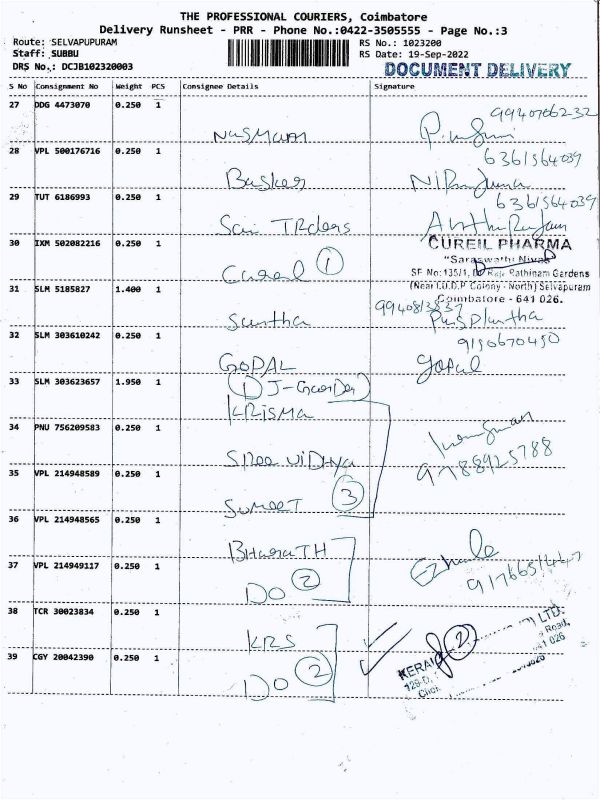 THE PROFESSIONAL COURIERS, Coimbatore
Delivery Runsheet - PRR - Phone No.:0422-3505555 - Page No.:3
Route: SELVAPUPURAM
RS No.: 1023200
Staff: SUBBU
RS Date: 19-Sep-2022
DRS No.: DCJB102320003
DOCUMENT DELIVERY
S No Consignment No Weight PCS Consignee Details Signature
27 DDG 4473070 0.250 1
9940706232
28 VPL 500176716 0.250 1
6361564039
Basker
29 TUT 6186993 0.250 1
6361564039
Sai TRders
30 IXM 502082216 0.250 1
CUREIL PHARMA
"Saraswathi Nivas"
Cureil 1
SF No:135/1, Rathinam Gardens
(Near I.U.D.P Colony - North) Selvapuram
31 SLM 5185827 1.400 1
Coimbatore - 641 026.
Suntha
Puspluntha
32 SLM 303610242 0.250 1
9150670450
GOPAL
gopal
33 SLM 303623657 1.950 1
KRISMA
34 PNU 756209583 0.250 1
Sree vidhya
9788925788
35 VPL 214948589 0.250 1
SUMEET 3
36 VPL 214948565 0.250 1
BharaTH
37 VPL 214949117 0.250 1
DO 2
38 TCR 30023834 0.250 1
KRS
2
LTD.
Road,
641 026
39 CGY 20042390 0.250 1
DO 2